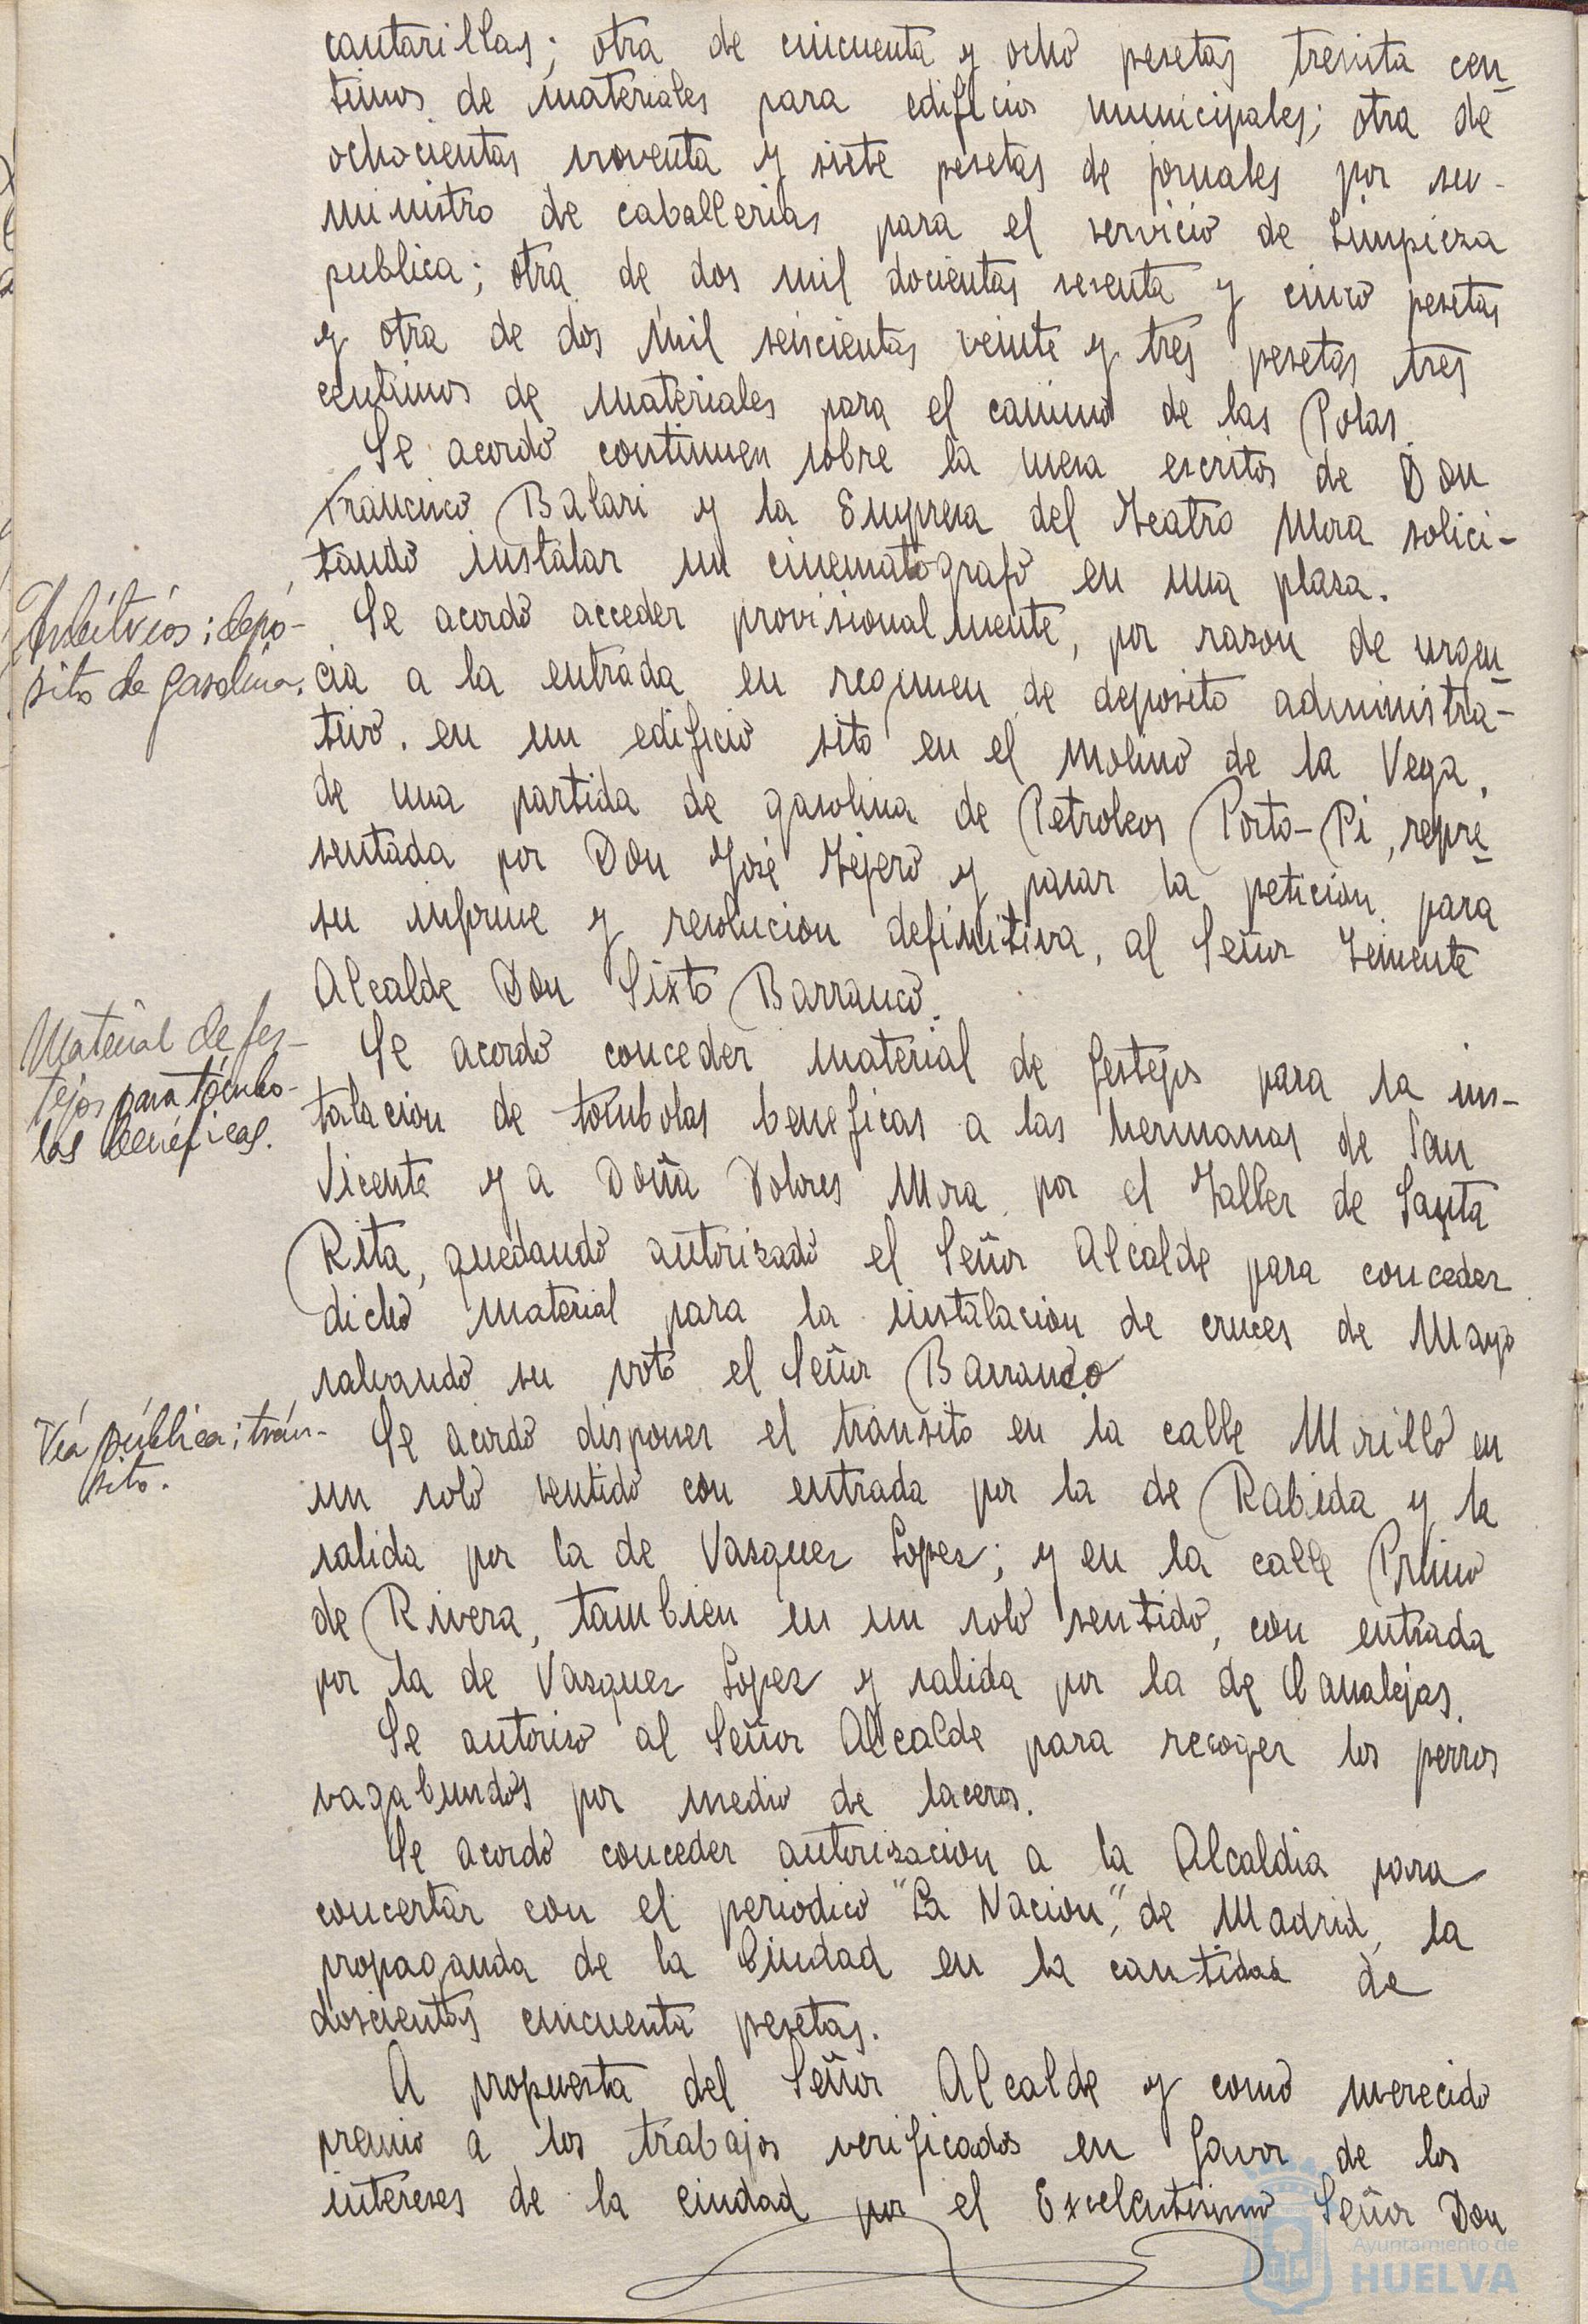 cantarillas; otra de cincuenta y ocho pesetas treinta cen-
timos de materiales para edificios municipales; otra de
ochocientas noventa y siete pesetas de jornales por su-
ministro de caballerias para el servicio de Limpieza
publica; otra de dos mil docientas sesenta y cinco pesetas
y otra de dos mil seiscientas veinte y tres pesetas tres
centimos de materiales para el camino de las Polas.
Se acordó continuen sobre la mesa escritos de Don
Francisco Balari y la Empresa del Teatro Mora solici-
tando instalar un cinematografo en una plaza.
Arbitrios; depó-
sito de gasolina.
Se acordó acceder provisionalmente, por razon de urgen-
cia a la entrada en regimen de deposito administra-
tivo, en un edificio sito en el Molino de la Vega,
de una partida de gasolina de Petroleos Porto-Pi, repre-
sentada por Don José Tejero y pasar la peticion para
su informe y resolucion definitiva, al Señor Teniente
Alcalde Don Sixto Barranco.
Material de fes-
tejos para tómbo-
las benéficas.
Se acordó conceder material de festejos para la ins-
talacion de tombolas beneficas a las hermanas de San
Vicente y a Doña Dolores Mora por el Taller de Santa
Rita, quedando autorizado el Señor Alcalde para conceder
dicho material para la instalacion de cruces de Mayo
salvando su voto el Señor Barranco
Vía pública; trán-
sito.
Se acordó disponer el transito en la calle Murillo en
un solo sentido con entrada por la de Rabida y la
salida por la de Vazquez Lopez; y en la calle Primo
de Rivera, tambien en un solo sentido, con entrada
por la de Vazquez Lopez y salida por la de Canalejas.
Se autorizo al Señor Alcalde para recoger los perros
vagabundos por medio de laceros.
Se acordó conceder autorizacion a la Alcaldia para
concertar con el periodico "La Nacion", de Madrid, la
propaganda de la Ciudad en la cantidad de
doscientas cincuenta pesetas.
A propuesta del Señor Alcalde y como merecido
premio a los trabajos verificados en favor de los
intereses de la ciudad por el Excelentisimo Señor Don
Ayuntamiento de
HUELVA